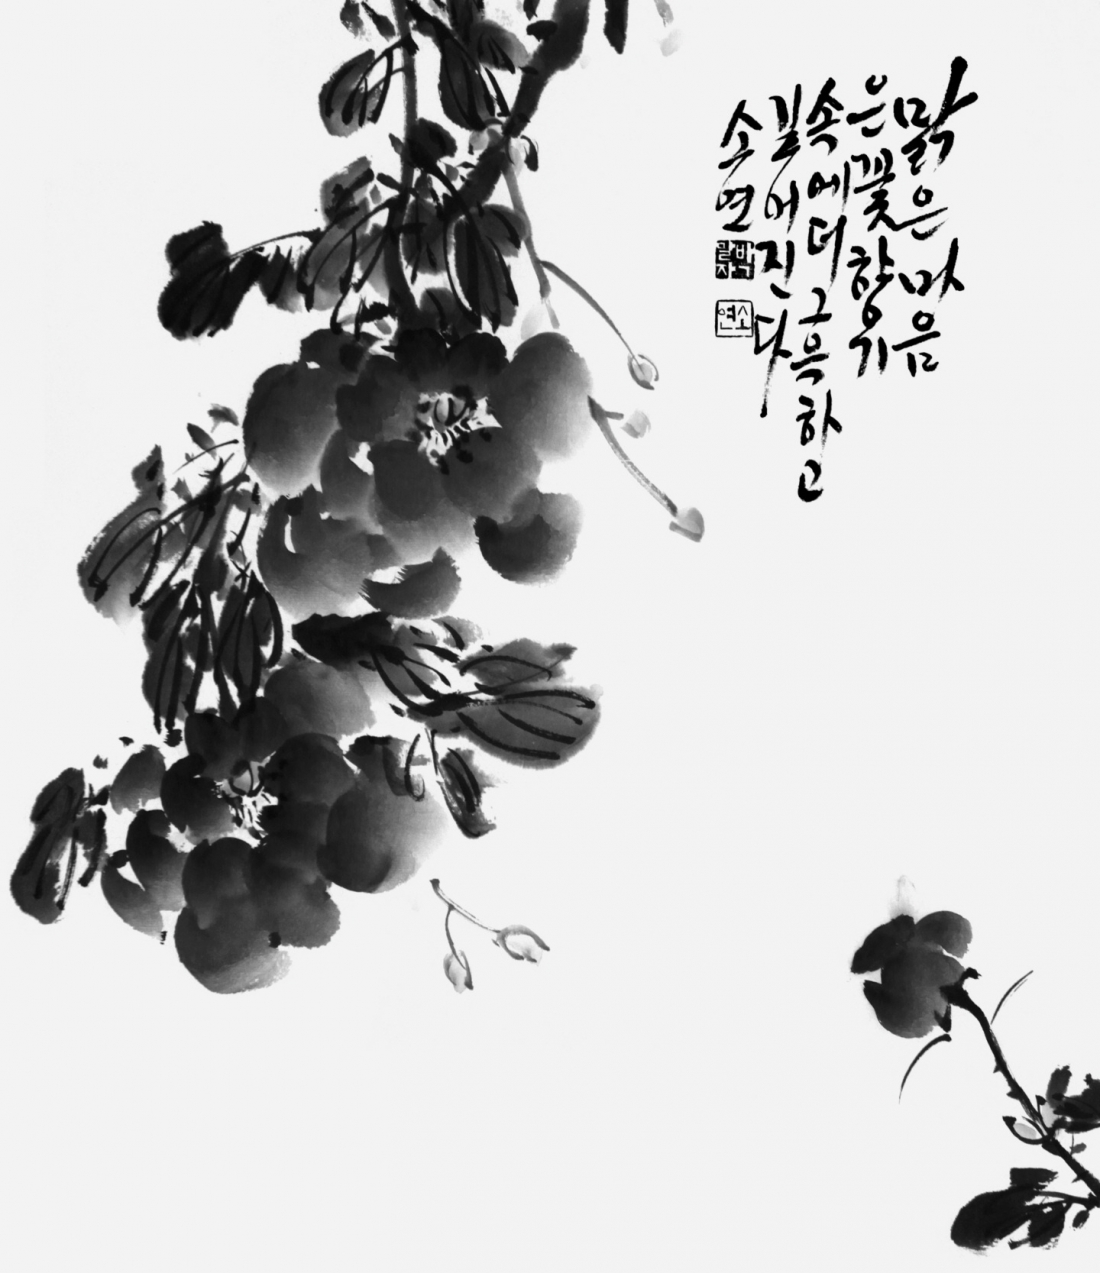 맑은 마음
은 꽃향기
속에 더 그윽하고
깊어진다
소연
소연